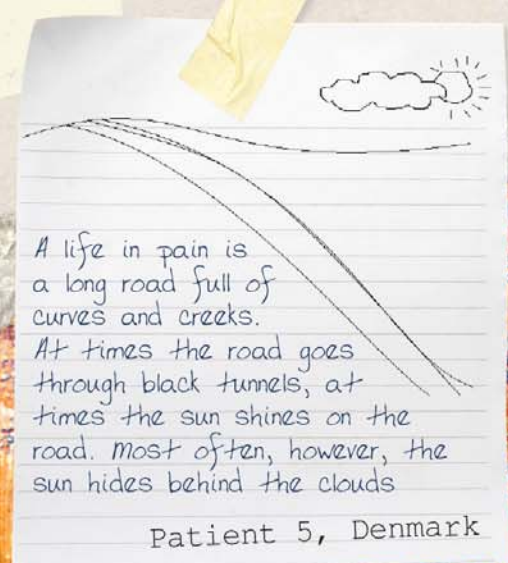 A life in pain is
a long road full of
curves and creeks.
At times the road goes
through black tunnels, at
times the sun shines on the
road. most often, however, the
sun hides behind the clouds
Patient 5, Denmark